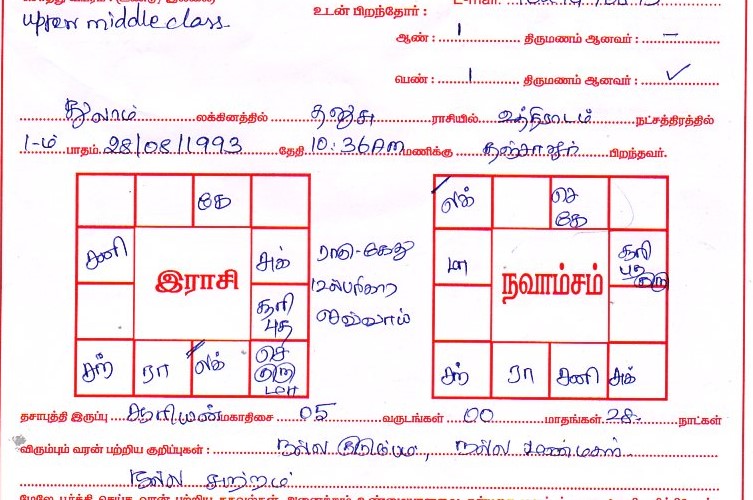 upper middle class
உடன் பிறந்தோர் :
ஆண் : 1 திருமணம் ஆனவர் : –
பெண் : 1 திருமணம் ஆனவர் : ✓
துலாம் லக்கினத்தில் தனுசு ராசியில் உத்திராடம் நட்சத்திரத்தில்
1-ம் பாதம் 28/08/1993 தேதி 10:36AM மணிக்கு தஞ்சாவூர் பிறந்தவர்.
கே
சனி சுக்
இராசி
சூரி புத
சந் ரா லக் செ குரு மா
ராகு-கேது
பரிகார
செவ்வாய்
லக் செ கே
மா சூரி புத குரு
நவாம்சம்
சந் ரா சனி சுக்
தசாபுத்தி இருப்பு சூரியன் மகாதிசை 05 வருடங்கள் 00 மாதங்கள் 28 நாட்கள்
விரும்பும் வரன் பற்றிய குறிப்புகள் : நல்ல குடும்பம், நல்ல மணமகன்
நல்ல